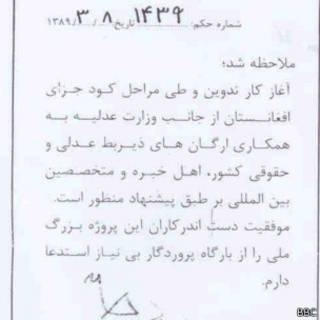 شماره حکم: ۱۴۳۹ تاریخ ۸/۳/۱۳۸۹
ملاحظه شد؛
آغاز کار تدوین و طی مراحل کود جزای
افغانستان از جانب وزارت عدلیه به
همکاری ارگان های ذیربط عدلی و
حقوقی کشور، اهل خبره و متخصصین
بین المللی بر طبق پیشنهاد منظور است.
موفقیت دست اندرکاران این پروژه بزرگ
ملی را از بارگاه پروردگار بی نیاز استدعا
دارم.
BBC